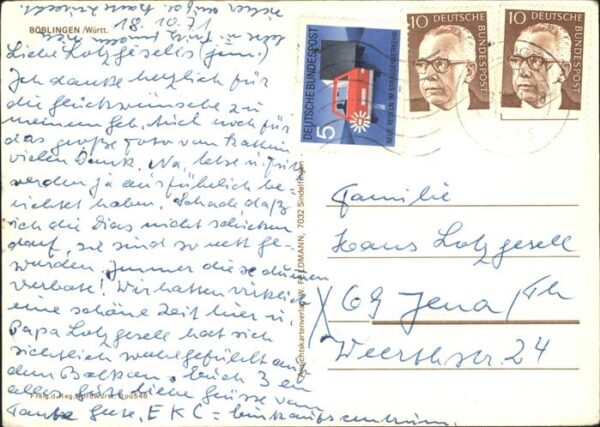 BÖBLINGEN /Württ.
18.10.71
Liebe Lotzgesells (jun.)
Ich danke herzlich für
die Glückwünsche zu
meinem Geb. Auch noch für
das große Foto von
vielen Dank. Na, u.
werden ja ausführlich be-
richtet haben. Schade daß
ich die Dias nicht schicken
darf, sie sind so nett ge-
worden. Immer diese dummen
Verbote! Wir hatten wirklich
eine schöne Zeit hier u.
Papa Lotzgesell hat sich
sichtlich wohlgefühlt auf
dem Balkon. Euch 3 en
alles Gute liebe Grüsse von
Tante EKC = Einkaufszentrum.
Freig. d. Reg. Nordwürtt.
Ansichtskartenverlag W. FELDMANN, 7032 Sindelfingen
DEUTSCHE BUNDESPOST
5
NEUE REGELN IM STRASSENVERKEHR
10 DEUTSCHE BUNDESPOST
10 DEUTSCHE BUNDESPOST
Familie
Hans Lotzgesell
69 Jena/Th
Weerthstr. 24